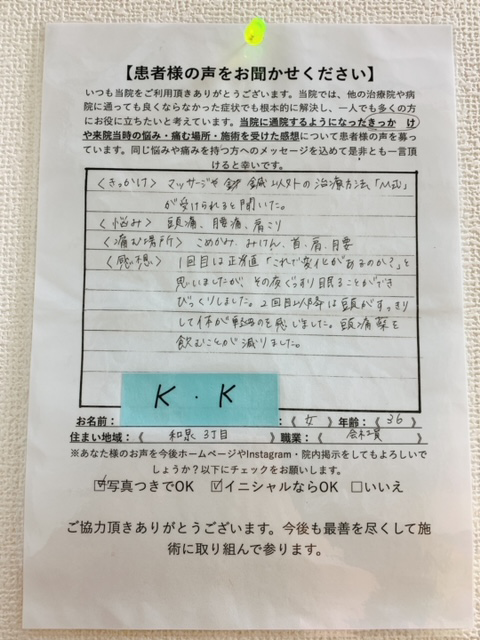 【患者様の声をお聞かせください】
いつも当院をご利用頂きありがとうございます。当院では、他の治療院や病
院に通っても良くならなかった症状でも根本的に解決し、一人でも多くの方
にお役に立ちたいと考えています。当院に通院するようになったきっか　け
や来院当時の悩み・痛む場所・施術を受けた感想について患者様の声を募っ
ています。同じ悩みや痛みを持つ方へのメッセージを込めて是非とも一言頂
けると幸いです。
〈きっかけ〉 マッサージや 鍼以外の治療方法「
が受けられると聞いた。
〈悩み〉 頭痛、腰痛、肩こり
〈痛む場所〉 こめかみ、みけん、首、肩、腰
〈感想〉 1回目は正直「これで変化があるのか?」と
思いましたが、その夜ぐっすり眠ることができ
びっくりしました。2回目以降は頭がすっきり
して体が軽いのを感じました。頭痛薬を
飲むことが減りました。
K . K
お名前： ：《 女 》年齢：《 36 》
住まい地域：《 和泉 3丁目 》 職業：《 会社員 》
※あなた様のお声を今後ホームページやInstagram・院内掲示をしてもよろしいで
しょうか？以下にチェックをお願いします。
☑写真つきでOK ☑イニシャルならOK □いいえ
ご協力頂きありがとうございます。今後も最善を尽くして施
術に取り組んで参ります。